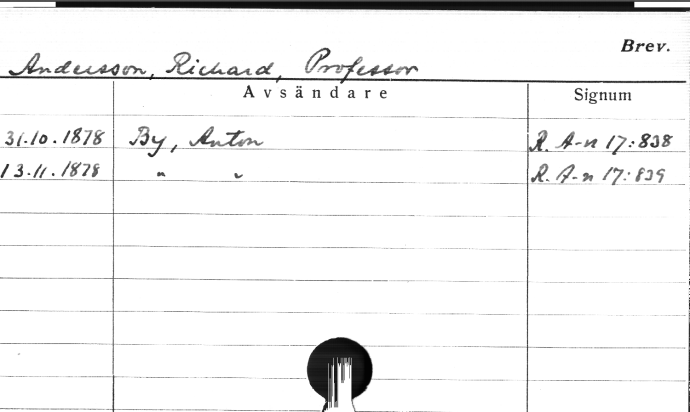 Brev.
Andersson, Richard, Professor
Avsändare Signum
31.10.1878 By, Anton R. A-n 17:838
13.11.1878 " " R. A-n 17:839